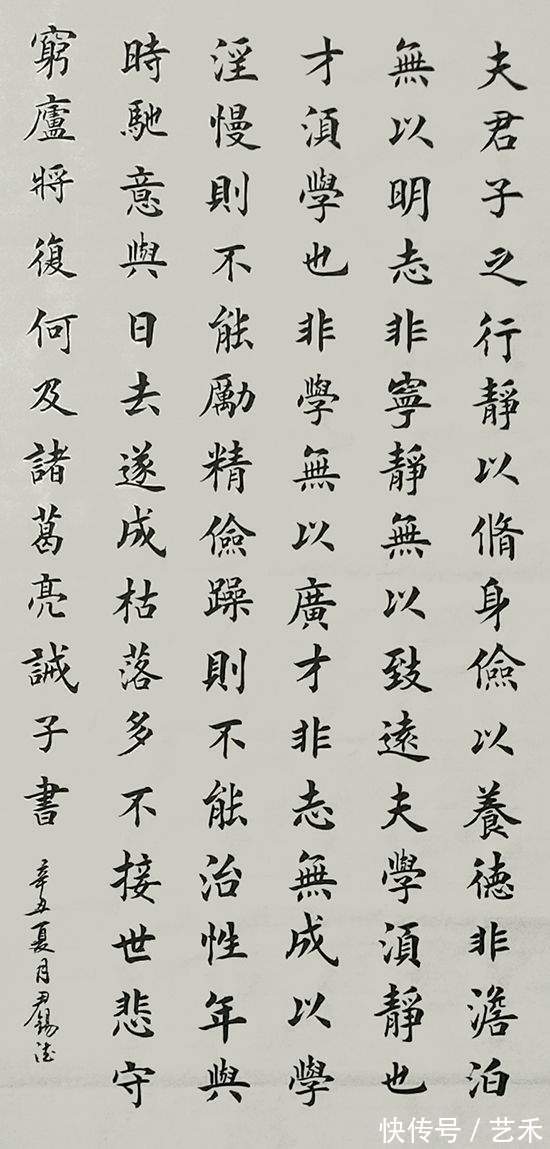 夫君子之行靜以脩身儉以養德非澹泊
無以明志非寧靜無以致遠夫學須靜也
才須學也非學無以廣才非志無成以學
淫慢則不能勵精儉躁則不能治性年與
時馳意與日去遂成枯落多不接世悲守
窮廬將復何及諸葛亮誡子書
辛丑夏月
快传号 / 艺禾